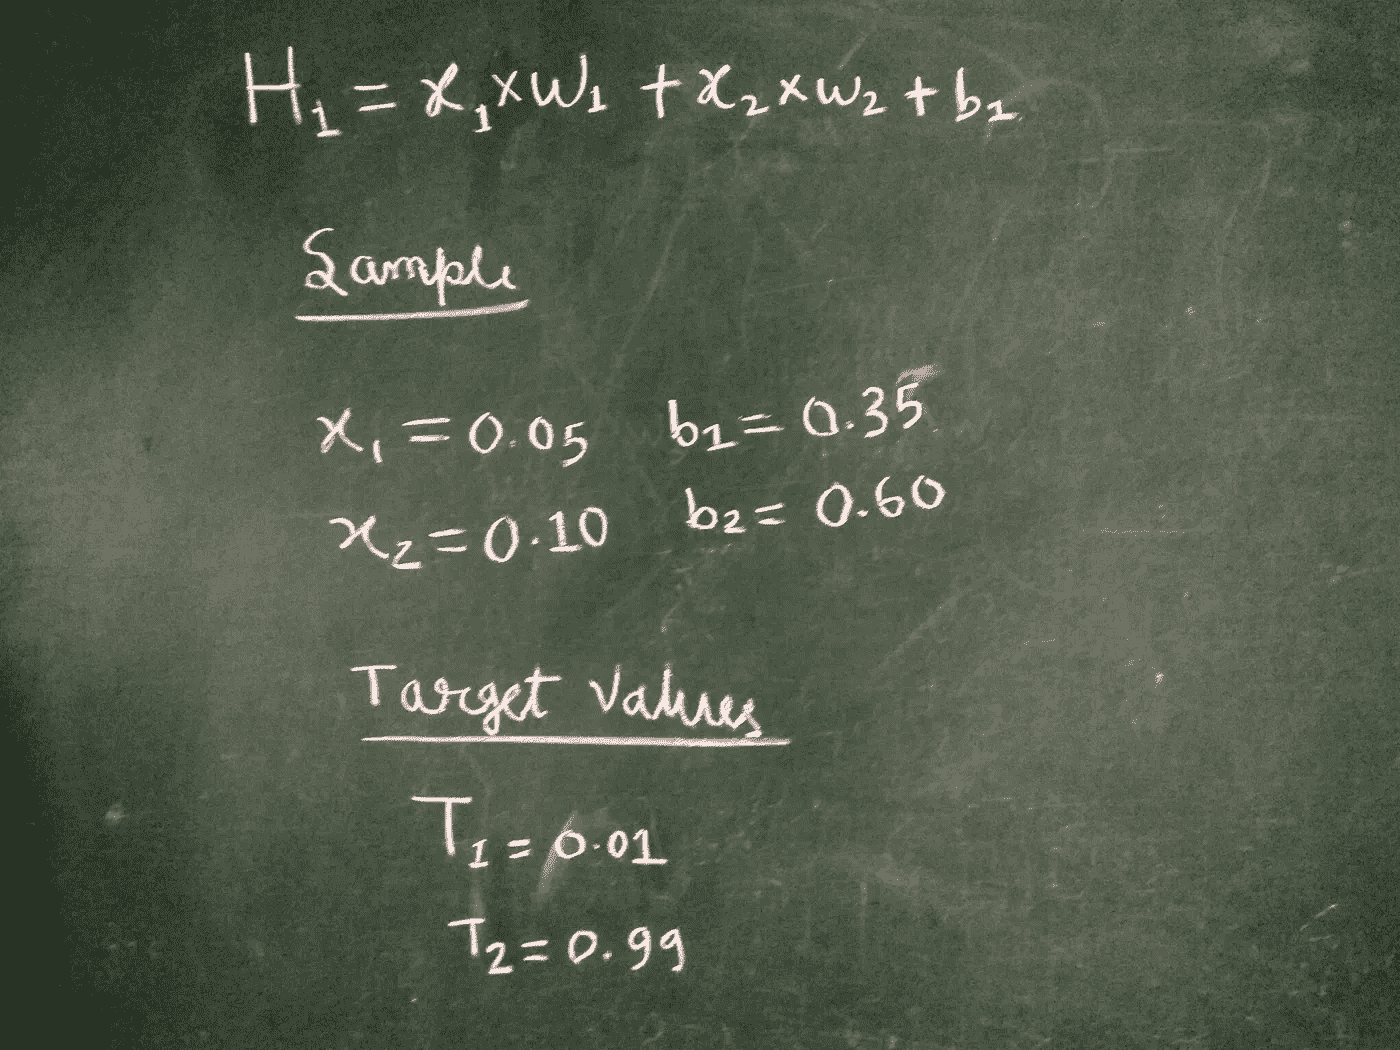 H₁ = x₁×w₁ + x₂×w₂ + b₁
Sample
x₁ = 0.05 b₁ = 0.35
x₂ = 0.10 b₂ = 0.60
Target Values
T₁ = 0.01
T₂ = 0.99